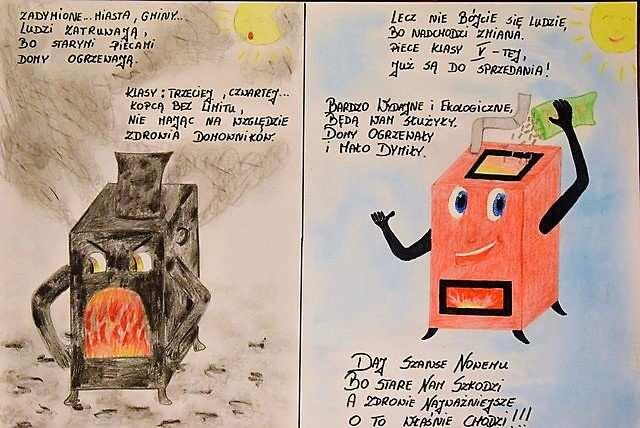 ZADYMIONE... MIASTA, GMINY...
LUDZI ZATRUWAJĄ,
BO STARYMI PIECAMI
DOMY OGRZEWAJĄ.
KLASY: TRZECIEJ, CZWARTEJ...
KOPCĄ BEZ LIMITU,
NIE MAJĄC NA WZGLĘDZIE
ZDROWIA DOMOWNIKÓW.
LECZ NIE BÓJCIE SIĘ LUDZIE,
BO NADCHODZI ZMIANA.
PIECE KLASY V-TEJ,
JUŻ SĄ DO SPRZEDANIA!
BARDZO WYDAJNE I EKOLOGICZNE,
BĘDĄ WAM SŁUŻYŁY.
DOMY OGRZEWAŁY
I MAŁO DYMIŁY.
DAJ SZANSE NOWEMU
BO STARE NAM SZKODZI
A ZDROWIE NAJWAŻNIEJSZE
O TO WŁAŚNIE CHODZI!!!